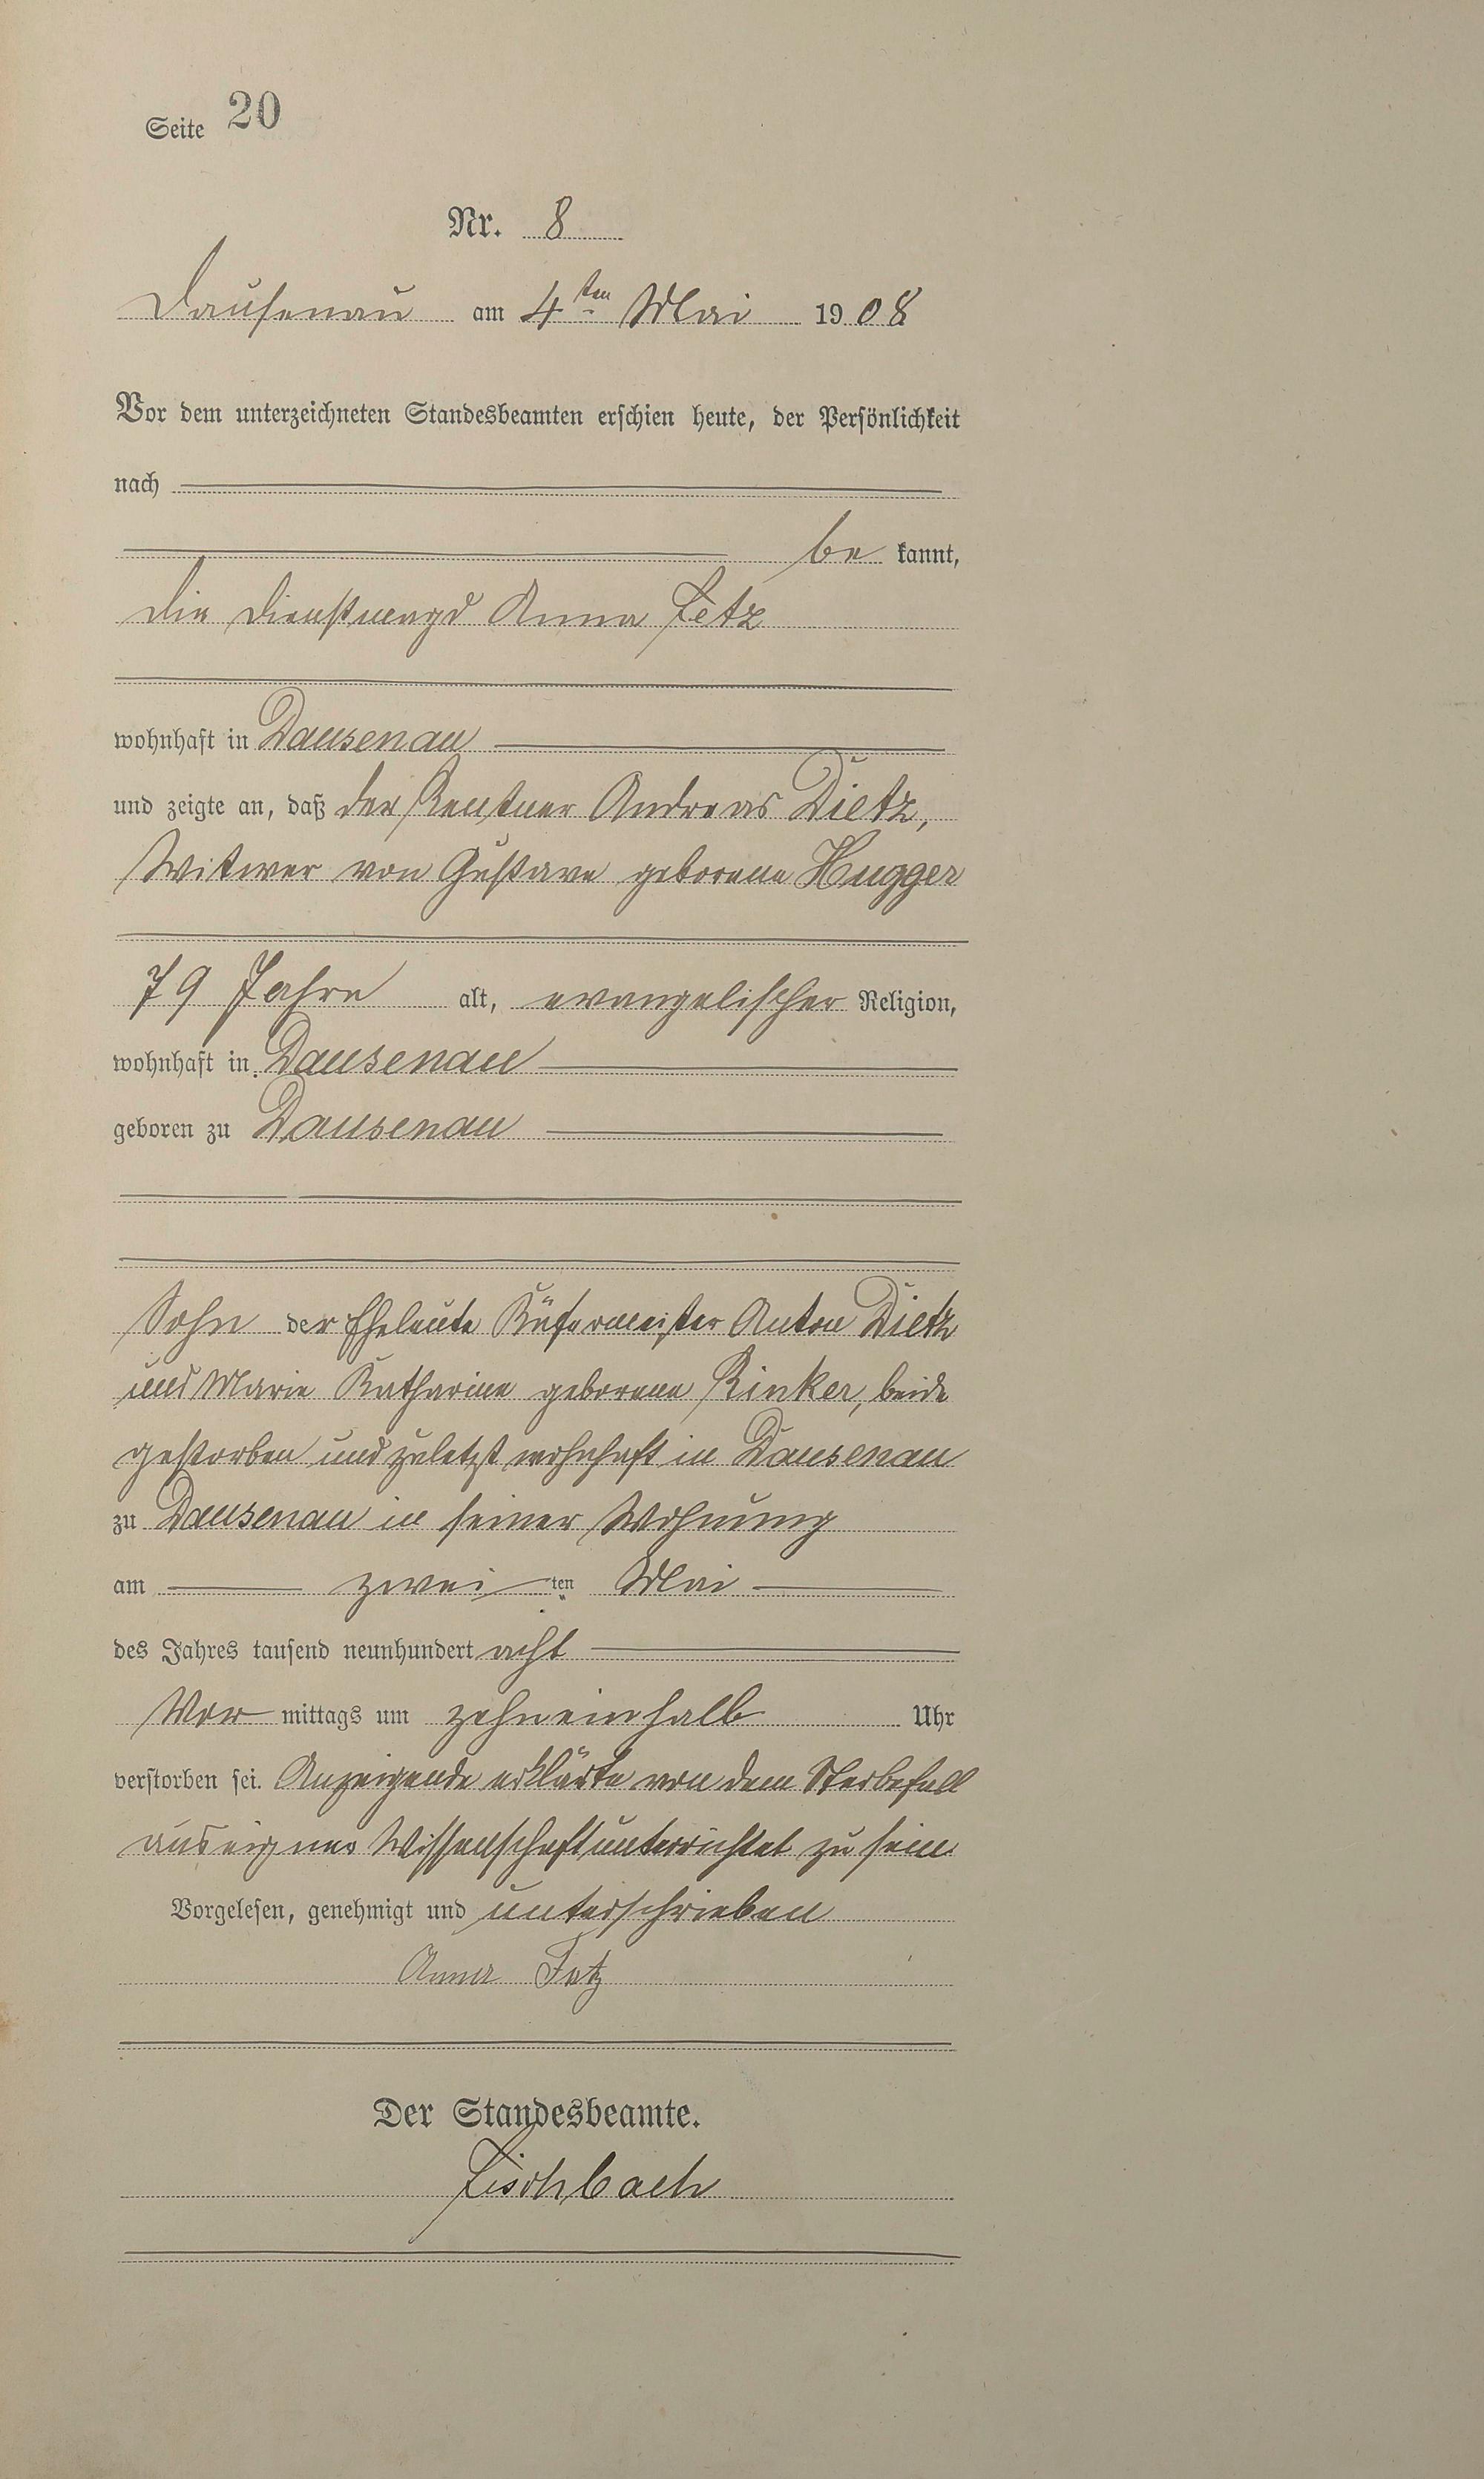 Seite 20
Nr. 8
Dausenau am 4ten Mai 1908
Vor dem unterzeichneten Standesbeamten erschien heute, der Persönlichkeit
nach
be kannt,
die Dienstmagd Anna Fetz
wohnhaft in Dausenau
und zeigte an, daß der Rentner Andreas Dietz,
Witwer von Gustave geborene Hugger
79 Jahre alt, evangelischer Religion,
wohnhaft in Dausenau
geboren zu Dausenau
Sohn der Eheleute Küfermeister Anton Dietz
und Marie Katharine geborene Rinker, beide
gestorben und zuletzt wohnhaft in Dausenau
zu Dausenau in seiner Wohnung
am zwei ten Mai
des Jahres tausend neunhundert acht
Vor mittags um zehneinhalb Uhr
verstorben sei. Anzeigende erklärte von dem Sterbefall
aus eigner Wissenschaft unterrichtet zu sein.
Vorgelesen, genehmigt und unterschrieben
Anna Fetz
Der Standesbeamte.
Fischbach